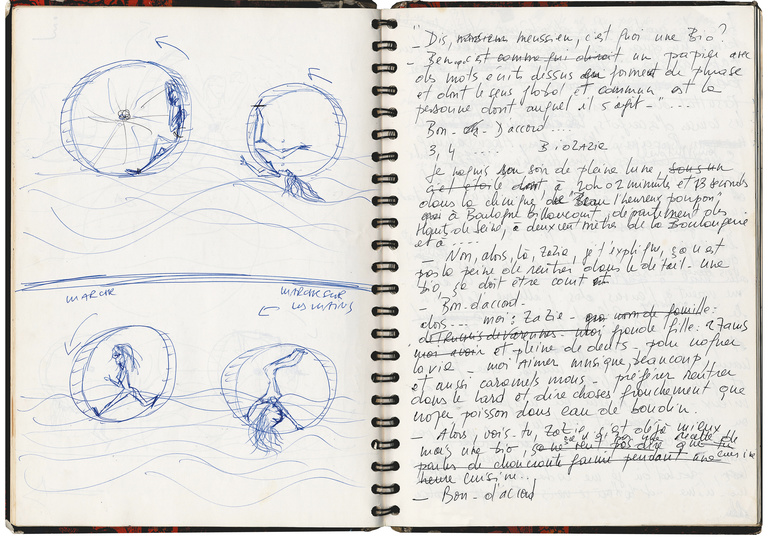 MARCHE
MARCHE SUR
LES MAINS
" Dis, monsieur meussieu, c'est quoi une Bio ?
- Ben, c'est comme qui dirait un papier avec
des mots écrits dessus qui forment des phrase
et dont le sens global est commun est la
personne dont auquel il s'agit - " ....
Bon - ah - D'accord ....
3, 4 ..... BIOZAZIE
Je naquis un soir de pleine lune, sous un
ciel étoilé dont, à 20h02 minutes et 73 secondes
dans la clinique de "Beau l'heureux poupon",
à Boulogne Billancourt, département des
Hauts de Seine, à deux cent mètre de la Boulangerie
et à .....
- Non, alors, là, Zazie, je t'explique, ça vaut
pas la peine de rentrer dans le détail - une
bio, ça doit être court
- Bon. d'accord -
alors ... moi ; Zazie - nom de famille :
de Truchis de Varennes. Moi grande fille : 27 ans
moi avoir et pleine de dents - pour croquer
la vie - moi aimer musique, beaucoup,
et aussi caramels mous - préférer rentrer
dans le lard et dire choses franchement que
noyer poisson dans eau de boudin.
- Alors, vois-tu, Zazie, c'est déjà mieux
mais une bio, ça ne veut pas dire que tu
parles de choucroute garnie pendant une
heure cuisine ...
- Bon - d'accord